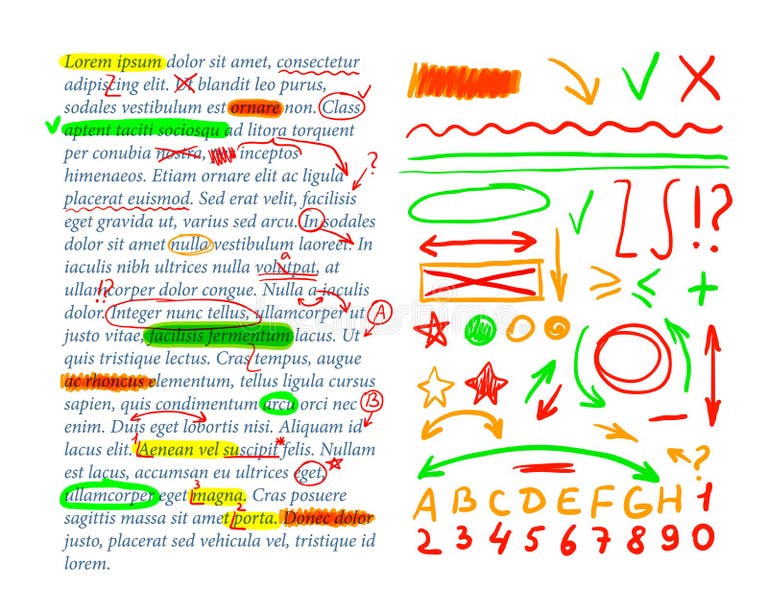 Lorem ipsum dolor sit amet, consectetur
adipiscing elit. Ut blandit leo purus,
sodales vestibulum est ornare non. Class
aptent taciti sociosqu ad litora torquent
per conubia nostra, inceptos
himenaeos. Etiam ornare elit ac ligula ?
placerat euismod. Sed erat velit, facilisis
eget gravida ut, varius sed arcu. In sodales
dolor sit amet nulla vestibulum laoreet. In
a
iaculis nibh ultrices nulla volutpat, at
!?
ullamcorper dolor congue. Nulla a iaculis
dolor. Integer nunc tellus, ullamcorper ut A
justo vitae, facilisis fermentum lacus. Ut
quis tristique lectus. Cras tempus, augue
ac rhoncus elementum, tellus ligula cursus
sapien, quis condimentum arcu orci nec B
enim. Duis eget lobortis nisi. Aliquam id
lacus elit. 1 Aenean vel suscipit* felis. Nullam
est lacus, accumsan eu ultrices eget,
ullamcorper eget 3 magna. Cras posuere
sagittis massa sit amet 2 porta. Donec dolor
justo, placerat sed vehicula vel, tristique id
lorem.
!?
≥ ≤ +
?
A B C D E F G H 1
2 3 4 5 6 7 8 9 0